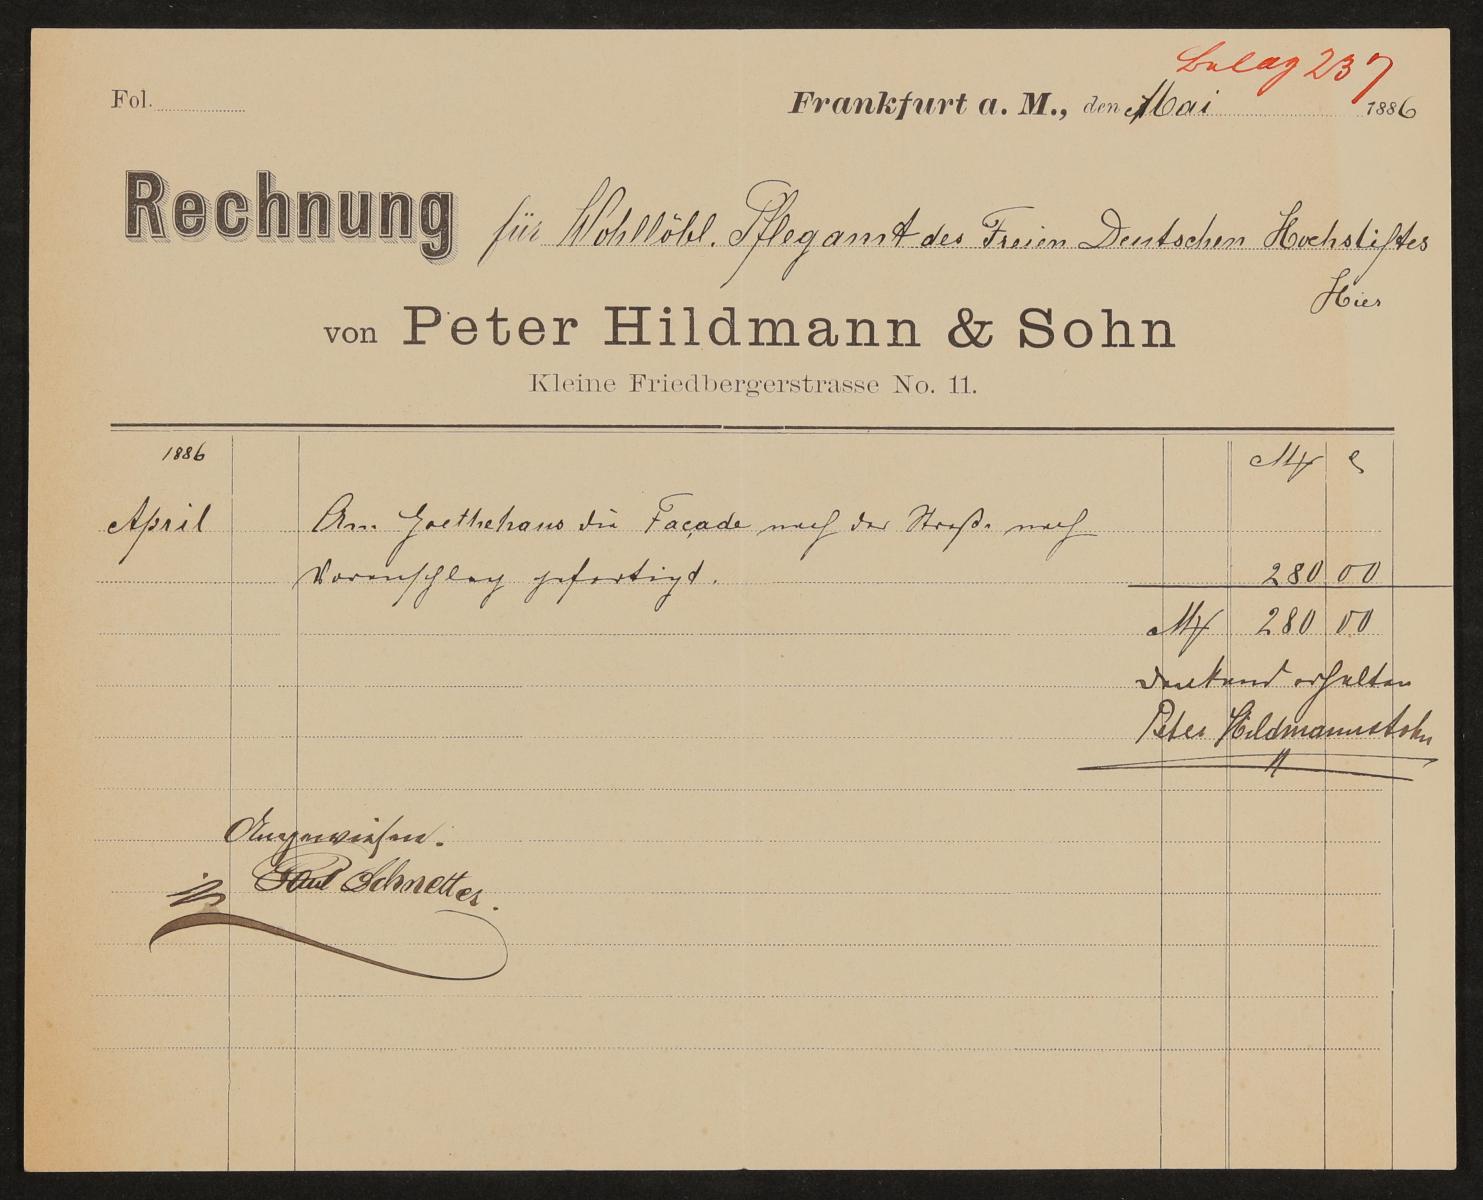 Belag 237
Fol.
Frankfurt a. M., den Mai 1886
Rechnung für Wohllöbl. Pflegamt des Freien Deutschen Hochstiftes
Hier
von Peter Hildmann & Sohn
Kleine Friedbergerstrasse No. 11.
1886 M δ
April Am Goethehaus die Façade nach der Straße nach
Voranschlag gefertigt. 280 00
M 280 00
dankend erhalten
Peter Hildmann & Sohn
Angewiesen.
Paul Schnetter.